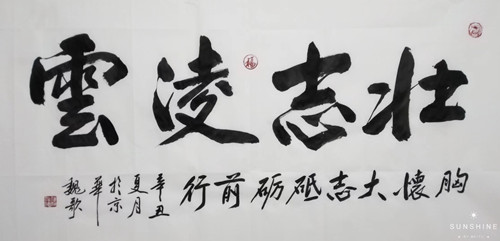 壮志凌雲
胸懷大志砥砺前行
辛丑
夏月
於京
華
魏歌
福
SUNSHINE